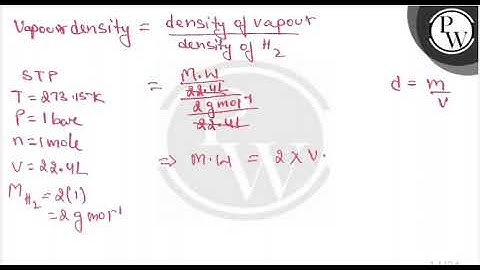 Vapour density = density of vapour / density of H2
STP
T = 273.15K
P = 1 bar
n = 1 mole
V = 22.4L
M H2 = 2(1)
= 2 g mol-1
= M.W / 22.4L / 2 g mol-1 / 22.4L
⇒ M.W = 2 × V.
d = m / V
PW